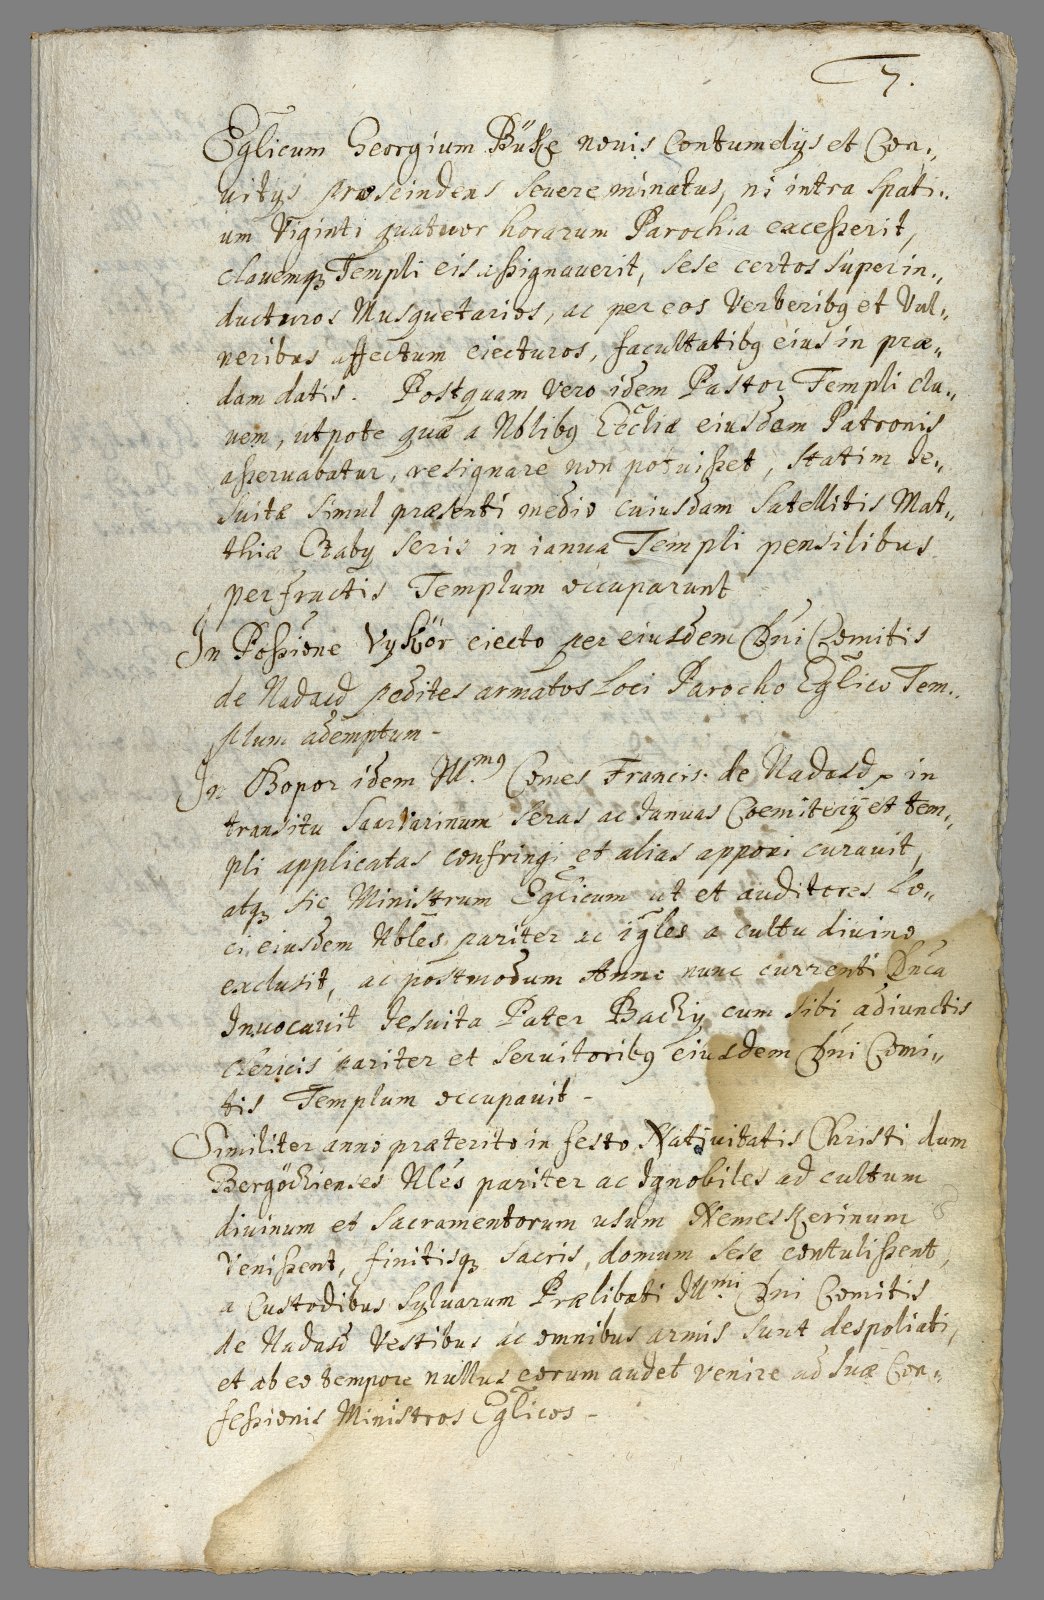 7.
Eglicum Georgium Büke novis Contumelijs et Con„
vitijs proscindens severe minatus, ni intra spati„
um Viginti quatuor horarum Parochia excesserit,
clavemq Templi eis assignaverit, sese certos superin„
ducturos Musquetarios, ac per eos Verberibq et Vul„
neribus affectum eiecturos, facultatibq eius in præ„
dam datis. Postquam vero idem Pastor Templi cla„
vem, utpote quæ a Nblibq Eccliæ eiusdem Patronis
asservabatur, resignare non potuisset, statim Je„
suitæ simul præsenti medio cuiusdam Satellitis Mat„
thiæ Czaby seris in ianua Templi pensilibus
perfractis Templum occuparunt
In Possione Vyskör eiecto per eiusdem Dni Comitis
de Nadasd pedites armatos Loci Parocho Eglico Tem„
plum ademptum -
In Bopor idem Illmq Comes Francis: de Nadasd in
transitu Saarvarinum seras ac Januas Coemiterij et tem„
pli applicatas confringi et alias apponi curavit,
atq sic Ministrum Eglicum ut et auditores Lo„
ci eiusdem Nbles pariter ac igles a cultu divino
exclusit, ac postmodum Anno nunc currenti Dnca
Invocavit Jesuita Pater Backy cum sibi adiunctis
Clericis pariter et Servitoribq eiusdem Dni Comi„
tis Templum occupavit -
Similiter anno præterito in festo Nativitatis Christi dum
Bergöckienses Nles pariter ac Ignobiles ad cultum
divinum et Sacramentorum usum Nemeskerinum
Venissent, finitisq sacris, domum sese contulissent,
a Custodibus Sylvarum Prælibati Illmi Dni Comitis
de Nadasd Vestibus ac omnibus armis sunt despoliati,
et ab eo tempore nullus eorum audet venire ad suæ Con„
fessionis Ministros Eglicos -